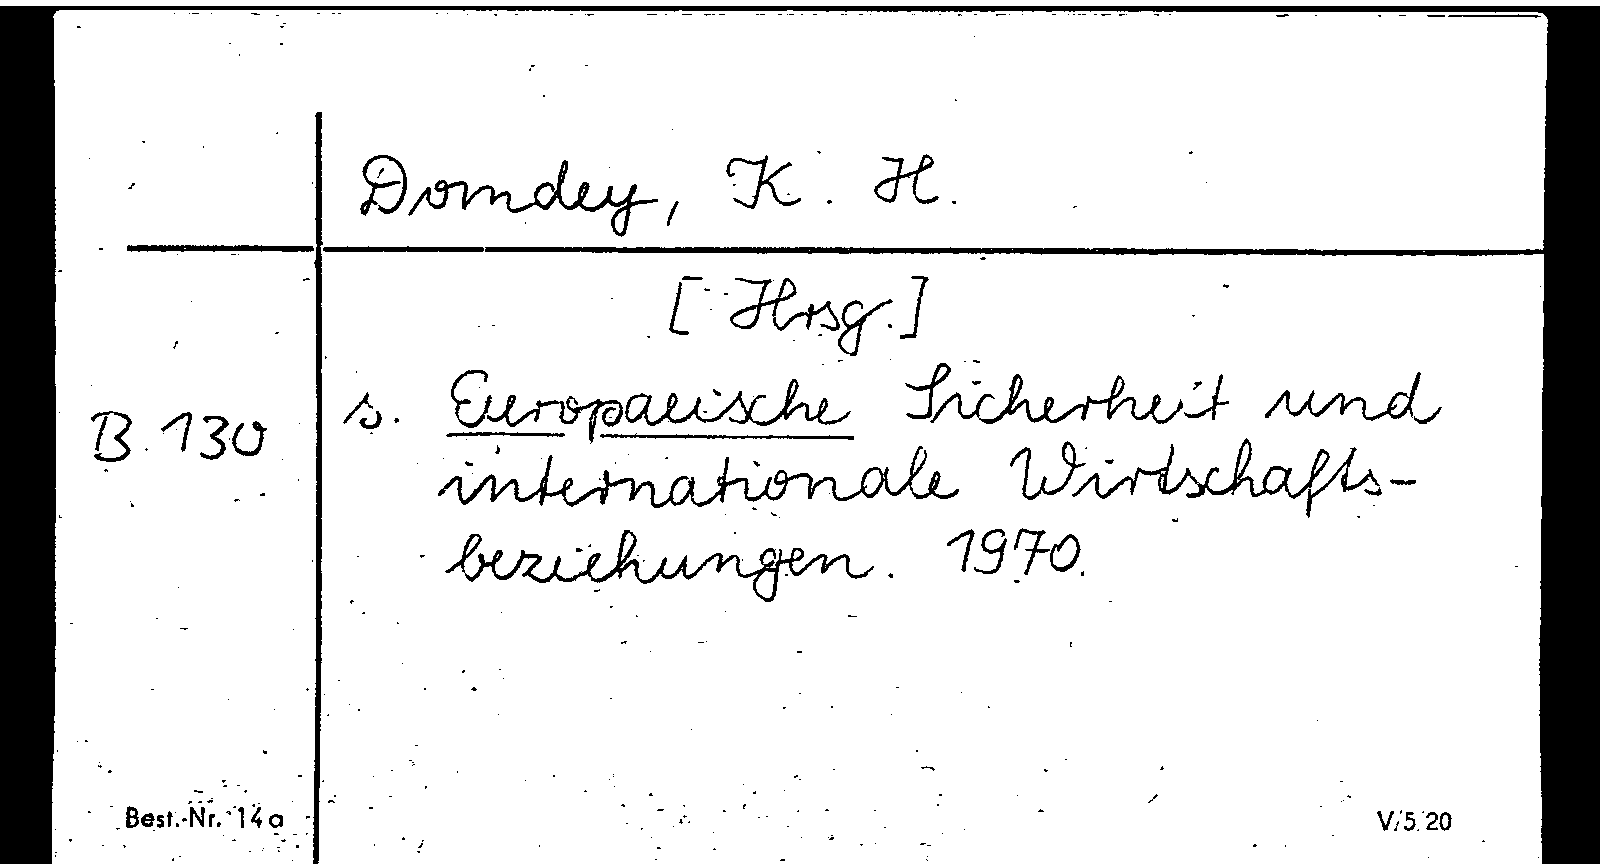 Domdey, K. H.
[Hrsg.]
B 130 s. Europaeische Sicherheit und
internationale Wirtschafts-
beziehungen. 1970.
Best.-Nr. 14a V/5 20